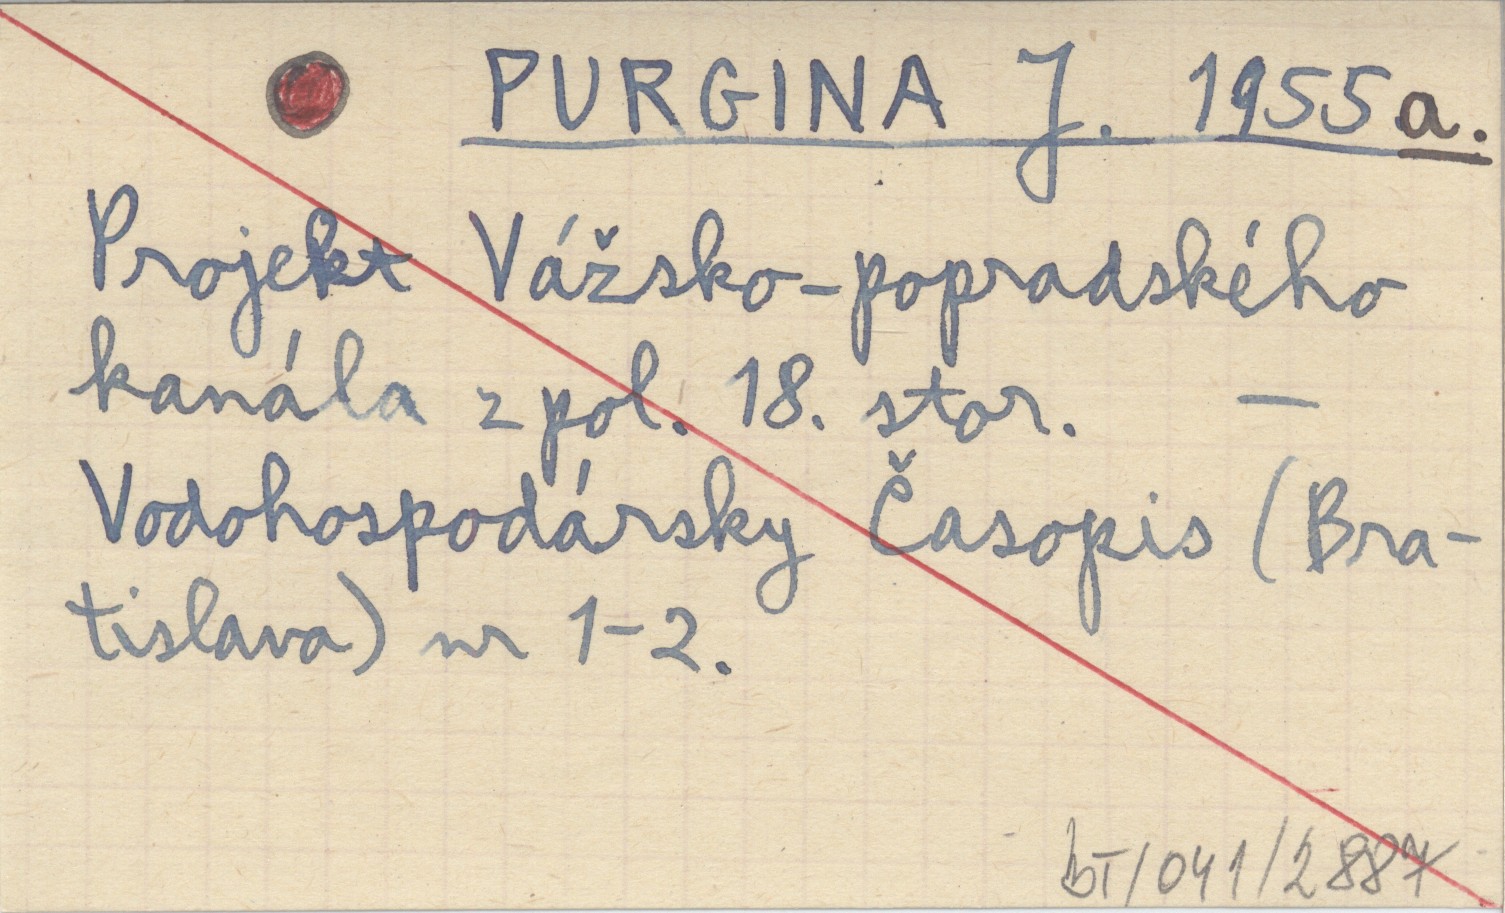 PURGINA J. 1955a.
Projekt Vážsko-popradského
kanála z pol. 18. stor. —
Vodohospodársky Časopis (Bra-
tislava) nr 1-2.
bT/041/2887